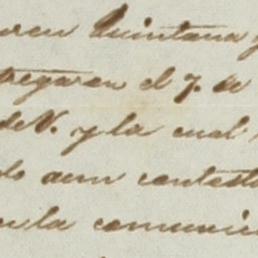 Quintana y
pegaron el 7. de
de V. y la cual
do aun contesta
en la comunic